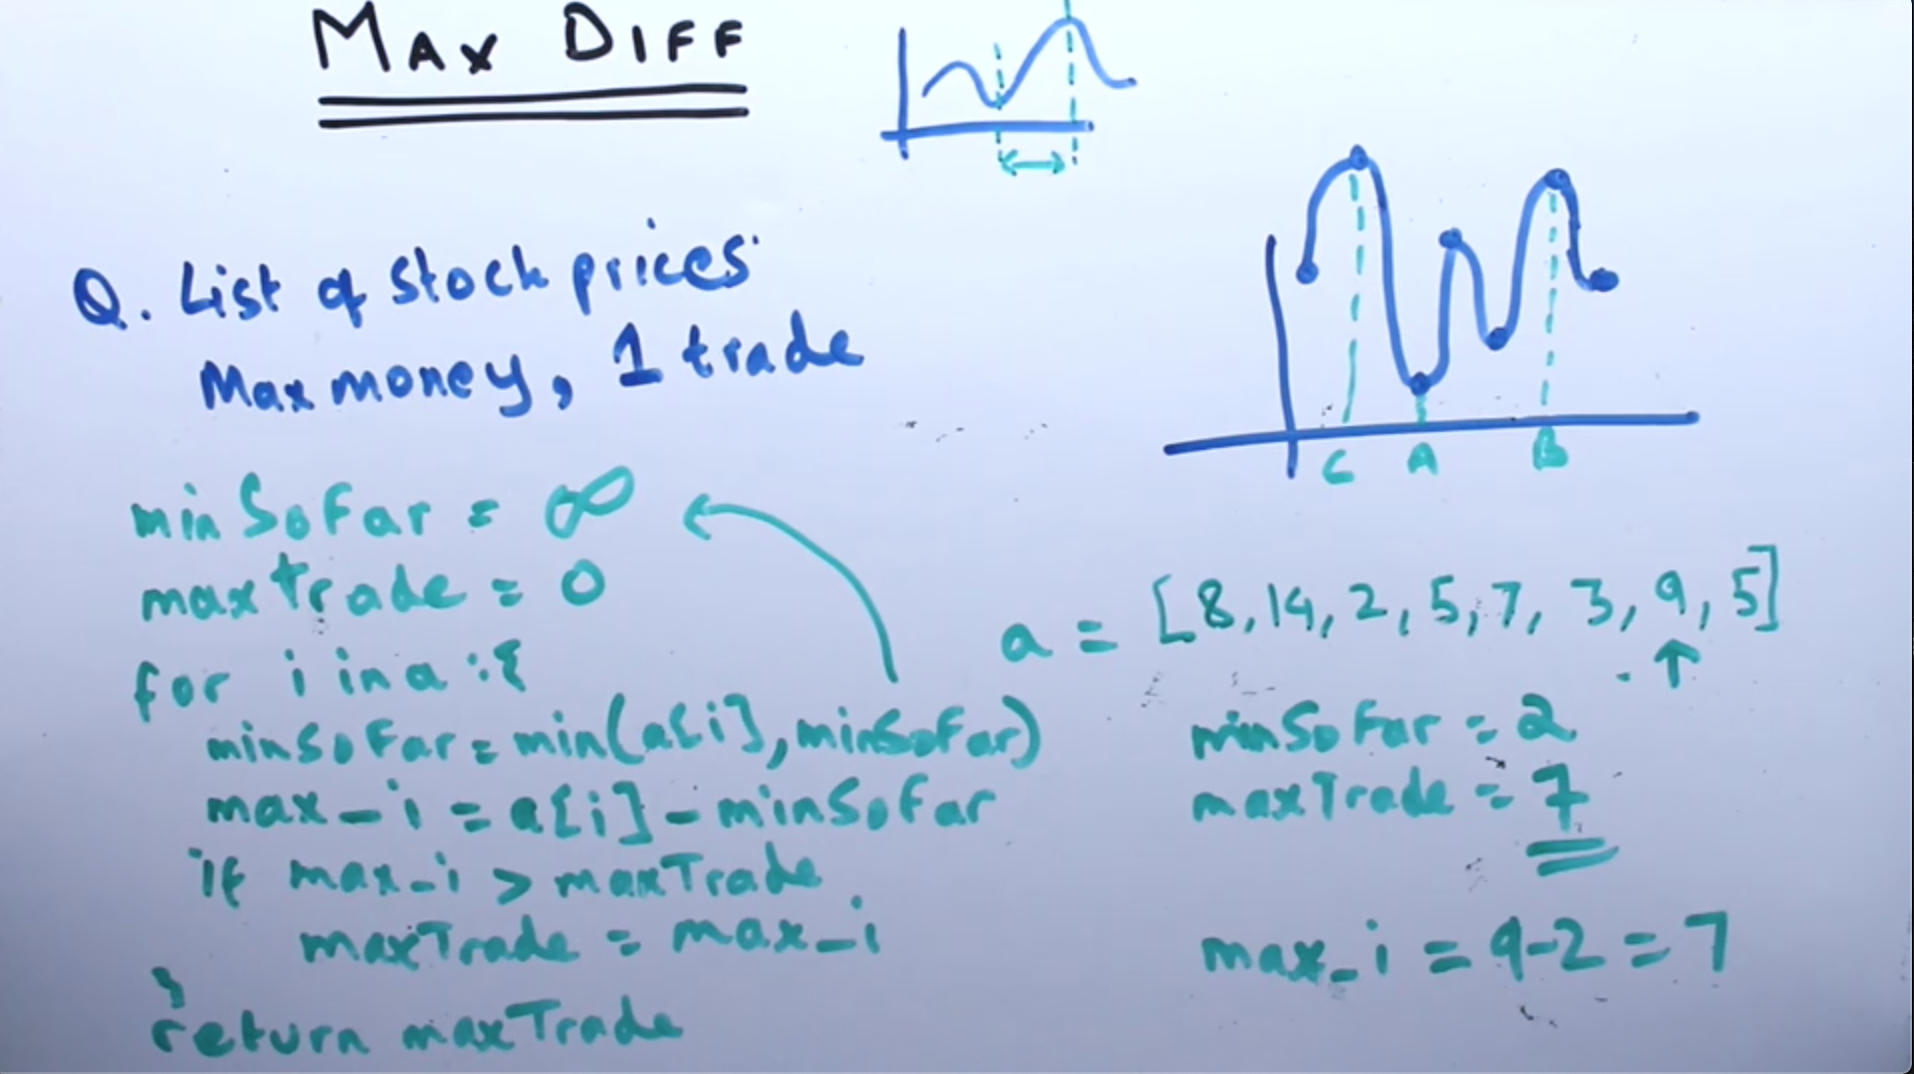 MAX DIFF
Q. List of stock prices
Max money, 1 trade
minSoFar = ∞
maxTrade = 0
for i in a :{
minSoFar = min(a[i], minSoFar)
max_i = a[i] - minSoFar
if max_i > maxTrade
maxTrade = max_i
}
return maxTrade
C A B
a = [8, 14, 2, 5, 7, 3, 9, 5]
minSoFar = 2
maxTrade = 7
max_i = 9-2 = 7